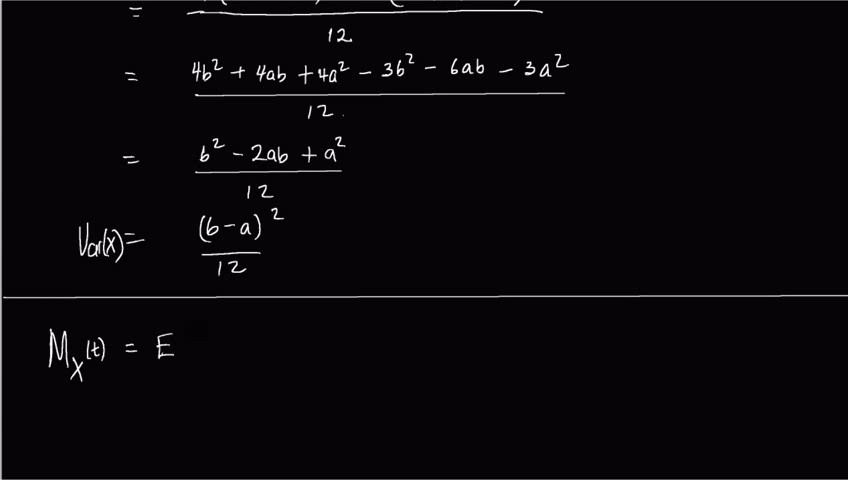 =
12
= 4b² + 4ab + 4a² - 3b² - 6ab - 3a²
12.
= b² - 2ab + a²
12
Var(X) = (b-a)²
12
M_X(t) = E